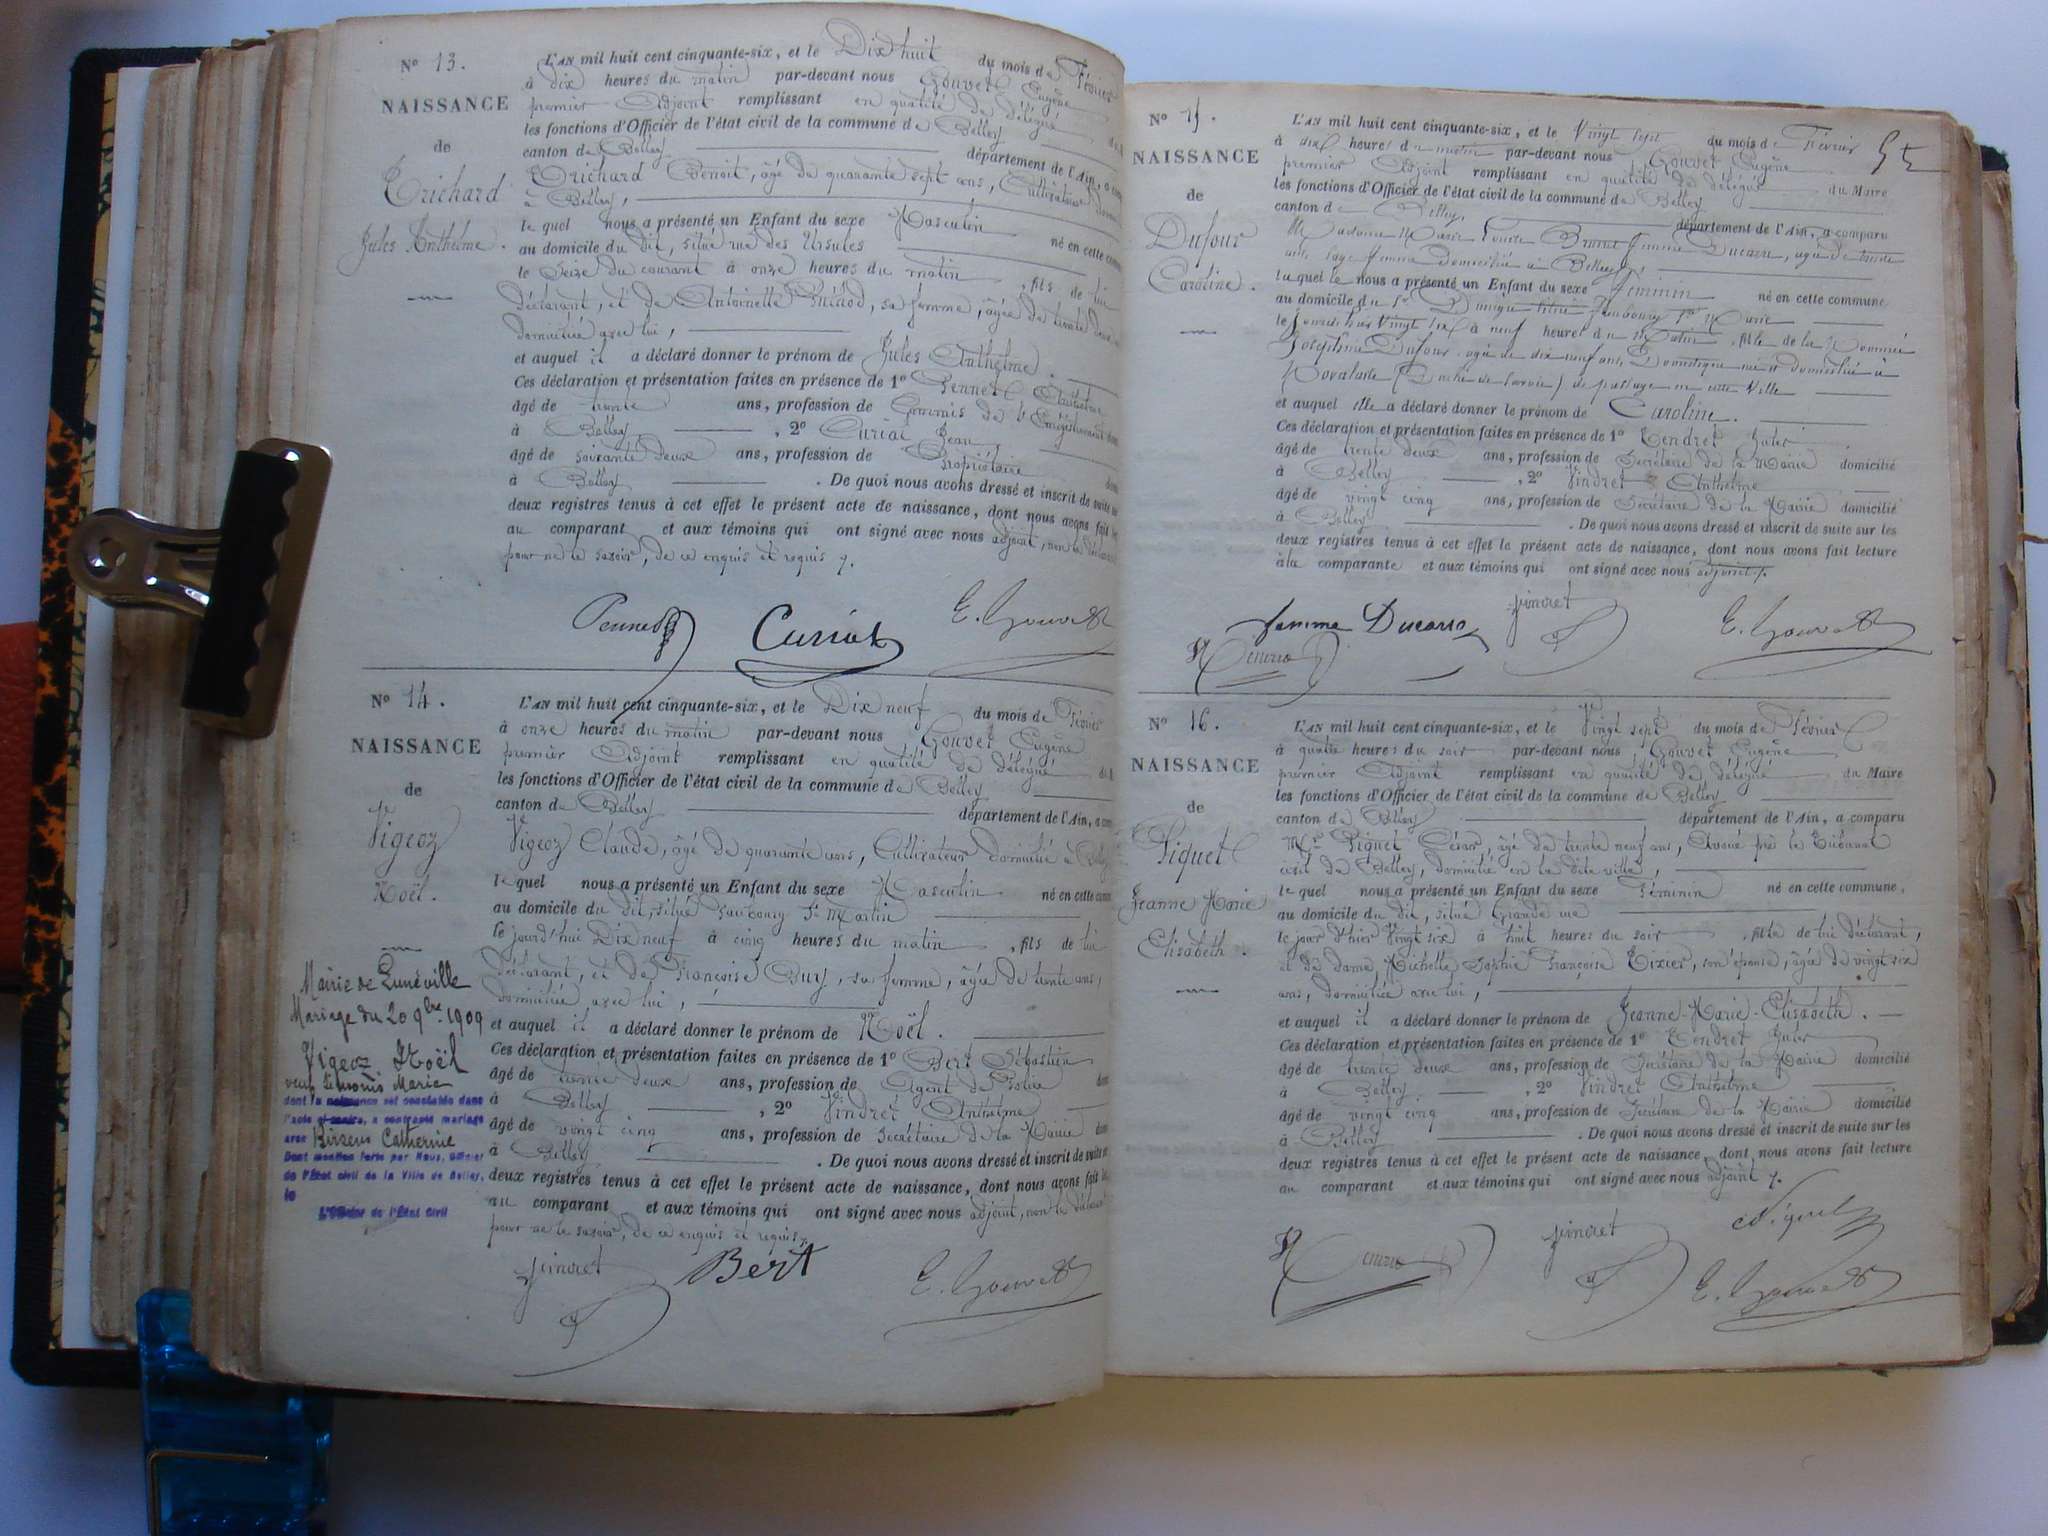 N° 13.
NAISSANCE
de
Trichard
Jules Anthelme.
L'AN mil huit cent cinquante-six, et le Dix huit du mois de Février
à dix heures du matin par-devant nous Gouvet Eugène
premier Adjoint remplissant en qualité de délégué
les fonctions d'Officier de l'état civil de la commune de Belley
canton de Belley département de l'Ain, a
Trichard Benoit, âgé de quarante sept ans, Cultivateur
à Belley,
le quel nous a présenté un Enfant du sexe Masculin né en cette
au domicile du dit, situé rue des Ursules
le Seize du courant à onze heures du matin, fils de lui
déclarant, et de Antoinette sa femme, âgée de trente deux
domiciliée avec lui,
et auquel il a déclaré donner le prénom de Jules Anthelme.
Ces déclaration et présentation faites en présence de 1°
âgé de trente ans, profession de Commis de l'Enregistrement
à Belley, 2° Curiat Jean,
âgé de soixante deux ans, profession de Propriétaire
à Belley. De quoi nous avons dressé et inscrit de suite
deux registres tenus à cet effet le présent acte de naissance, dont nous avons fait
au comparant et aux témoins qui ont signé avec nous adjoint, non le déclarant
pour ne le savoir, de ce enquis et requis
Curiat
E. Gouvet
N° 14.
NAISSANCE
de
Vigeoz
Noël.
Mairie de Lunéville
Mariage du 20 9bre 1909
Vigeoz Noël
veuf Marie
dont la naissance est constatée dans
l'acte ci-contre, a contracté mariage
avec Catherine
Dont mention faite par Nous, Officier
de l'État civil de la Ville de Belley,
le
L'Officier de l'État Civil
L'AN mil huit cent cinquante-six, et le Dix neuf du mois de Février
à onze heures du matin par-devant nous Gouvet Eugène
premier Adjoint remplissant en qualité de délégué
les fonctions d'Officier de l'état civil de la commune de Belley
canton de Belley département de l'Ain, a
Vigeoz Claude, âgé de quarante ans, Cultivateur domicilié à Belley
le quel nous a présenté un Enfant du sexe Masculin né en cette
au domicile du dit, situé faubourg St Martin
le jourd'hui Dix neuf à cinq heures du matin, fils de lui
déclarant, et de Françoise Bury, sa femme, âgée de trente ans,
domiciliée avec lui,
et auquel il a déclaré donner le prénom de Noël.
Ces déclaration et présentation faites en présence de 1° Bert Sébastien
âgé de trente deux ans, profession de Agent de Police
à Belley, 2° Vindret Anthelme
âgé de vingt cinq ans, profession de Secrétaire de la Mairie
à Belley. De quoi nous avons dressé et inscrit de suite
deux registres tenus à cet effet le présent acte de naissance, dont nous avons fait
au comparant et aux témoins qui ont signé avec nous adjoint, non le déclarant
pour ne le savoir, de ce enquis et requis
Vindret Bert E. Gouvet
N° 15.
NAISSANCE
de
Dufour
Caroline.
L'AN mil huit cent cinquante-six, et le Vingt sept du mois de Février
à dix heures du matin par-devant nous Gouvet Eugène
premier Adjoint remplissant en qualité de délégué du Maire
les fonctions d'Officier de l'état civil de la commune de Belley
canton de Belley, département de l'Ain, a comparu
Madame Marie Louise Brunet femme Ducarre, agée de trente
ans, sage femme domiciliée à Belley
la quelle nous a présenté un Enfant du sexe féminin né en cette commune
au domicile du Sr faubourg St Marie
le à neuf heures du Matin, fille de la Nommée
Joséphine Dufour agée de dix neuf ans, Domestique née et domiciliée à
Novalaise (Duché de Savoie) de passage en cette Ville
et auquel elle a déclaré donner le prénom de Caroline.
Ces déclaration et présentation faites en présence de 1° Tendret Jules
âgé de trente deux ans, profession de Secrétaire de la Mairie domicilié
à Belley, 2° Vindret Anthelme
âgé de vingt cinq ans, profession de Secrétaire de la Mairie domicilié
à Belley. De quoi nous avons dressé et inscrit de suite sur les
deux registres tenus à cet effet le présent acte de naissance, dont nous avons fait lecture
à la comparante et aux témoins qui ont signé avec nous adjoint
femme Ducarre Vindret E. Gouvet
N° 16.
NAISSANCE
de
Piquet
Jeanne Marie
Elisabeth.
L'AN mil huit cent cinquante-six, et le Vingt sept du mois de Février
à quatre heures du soir par-devant nous Gouvet Eugène
premier Adjoint remplissant en qualité de délégué du Maire
les fonctions d'Officier de l'état civil de la commune de Belley
canton de Belley département de l'Ain, a comparu
Mr Piquet César, âgé de trente neuf ans, Avoué près le Tribunal
civil de Belley, domicilié en la dite ville,
le quel nous a présenté un Enfant du sexe féminin né en cette commune,
au domicile du dit, situé Grande rue
le jour d'hier Vingt six à huit heures du soir, fille de lui déclarant,
et de dame, Michelle Sophie Françoise Tixier, son épouse, âgée de vingt six
ans, domiciliée avec lui,
et auquel il a déclaré donner le prénom de Jeanne-Marie-Elisabeth.
Ces déclaration et présentation faites en présence de 1° Tendret Jules
âgé de trente deux ans, profession de Secrétaire de la Mairie domicilié
à Belley, 2° Vindret Anthelme
âgé de vingt cinq ans, profession de Secrétaire de la Mairie domicilié
à Belley. De quoi nous avons dressé et inscrit de suite sur les
deux registres tenus à cet effet le présent acte de naissance, dont nous avons fait lecture
au comparant et aux témoins qui ont signé avec nous adjoint
Vindret
E. Gouvet